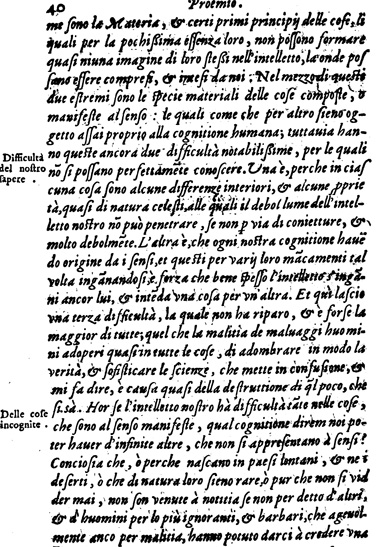 40 Proemio.
me sono la Materia, & certi primi principij delle cose, li
quali per la pochissima essenza loro, non possono formare
quasi niuna imagine di loro stessi nell'intelletto, laonde pos
sano essere compresi, & intesi da noi: Nel mezzo di questi
due estremi sono le specie materiali delle cose composte, o
manifeste al senso: le quali come che per altro sieno og-
getto assai proprio alla cognitione humana; tuttauia han-
no queste ancora due difficultà notabilissime, per le quali
Difficultà
del nostro
sapere.
nõ si possano perfettamẽte conoscere. Una è, perche in cias
cuna cosa sono alcune differenze interiori, & alcune ꝓprie
tà, quasi di natura celesti, alle quali il debol lume dell'intel-
letto nostro nõ può penetrare, se non ꝑ via di conietture, &
molto debolmẽte. L'altra è, che ogni nostra cognitione hauẽ
do origine da i sensi, et questi per varij loro mãcamenti tal
volta ingãnandosi, è forza che bene spesso l'intelletto s'ingã-
ni ancor lui, & intẽda vna cosa per vn'altra. Et qui lascio
vna terza difficultà, la quale non ha riparo, & è forse la
maggior di tutte; quel che la malitia de maluaggi huomi-
ni adoperi quasi in tutte le cose, di adombrare in modo la
verità, & sofisticare le scienze, che mette in confusione, &
mi fa dire, è causa quasi della destruttione di q̃l poco, che
si sà. Hor se l'intelletto nostro hà difficultà tãte nelle cose,
Delle cose
incognite.
che sono al senso manifeste, qual cognitione direm noi po-
ter hauer d'infinite altre, che non si appresentano à sensi?
Conciosia che, ò perche nascano in paesi lontani, & ne i
deserti, ò che di natura loro sieno rare, ò pur che non si vid
der mai, non son venute à notitia se non per detto d'altri,
& d'huomini per lo più ignoranti, & barbari, che ageuol
mente anco per malitia, hanno potuto darci à credere vna